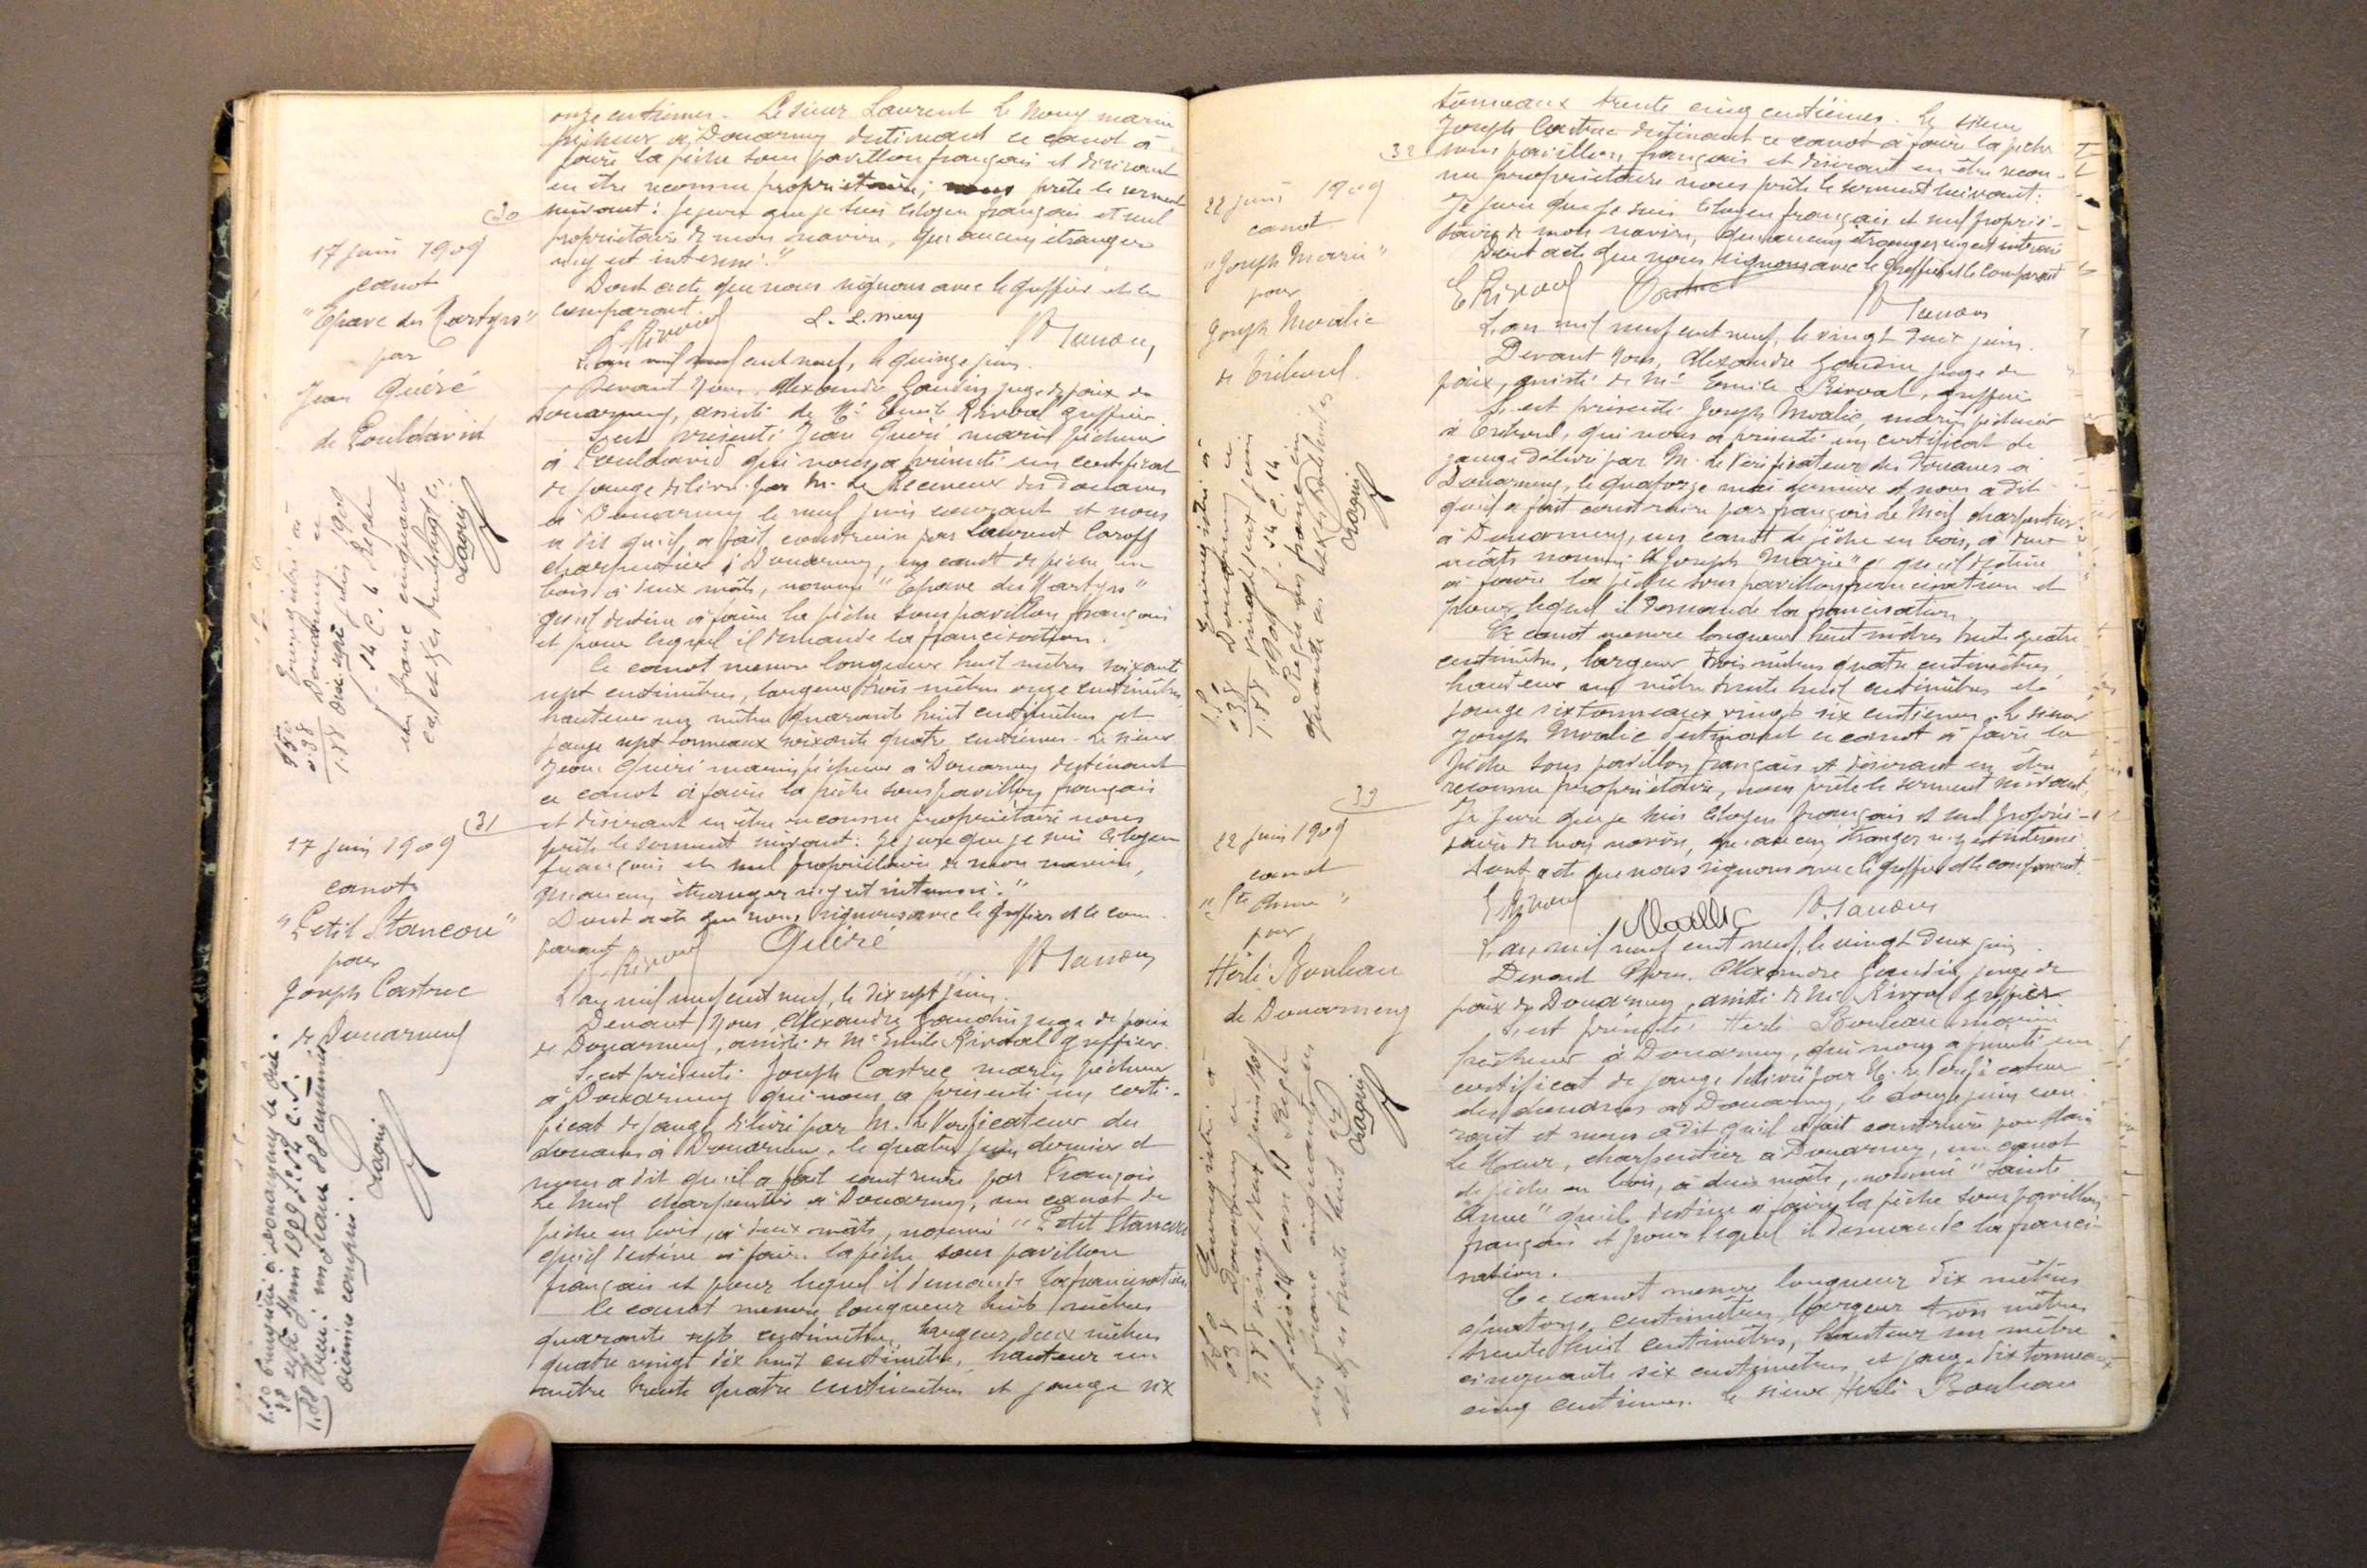 onze centièmes. Le sieur Laurent Le Mouy marin
pêcheur à Douarnenez destinant ce canot à
faire la pêche sous pavillon français et désirant
en être reconnu propriétaire; nous prête le serment
suivant: Je jure que je suis citoyen français et seul
propriétaire de mon navire, qu'aucun étranger
n'y est intéressé."
Dont acte que nous signons avec le greffier et le
comparant.
E Rivoal
30
17 juin 1909
canot
"Epave des Martyrs"
par
Jean Quéré
de Pouldavid
Enregistré à
Douarnenez le
dix-sept juin 1909
f. 54 C. 6 Reçu
un franc cinquante
1.50
0.38
1.88
L'an mil neuf cent neuf, le quinze juin.
Devant Nous, Alexandre Gaudin juge de paix de
Douarnenez, assisté de Me Emile Rivoal greffier.
S'est présenté Jean Quéré marin pêcheur
à Pouldavid qui nous a présenté un certificat
de jauge délivré par M. Le Receveur des douanes
à Douarnenez le neuf juin courant et nous
a dit qu'il a fait construire par Laurent Caroff
charpentier à Douarnenez, un canot de pêche en
bois à deux mâts, nommé "Epave des Martyrs"
qu'il destine à faire la pêche sous pavillon français
et pour lequel il demande la francisation.
Ce canot mesure longueur huit mètres soixante
sept centimètres, largeur trois mètres onze centimètres,
hauteur un mètre quarante huit centimètres et
jauge sept tonneaux soixante quatre centièmes. Le sieur
Jean Quéré marin pêcheur à Douarnenez destinant
ce canot à faire la pêche sous pavillon français
et désirant en être reconnu propriétaire nous
prête le serment suivant: Je jure que je suis citoyen
français et seul propriétaire de mon navire,
qu'aucun étranger n'y est intéressé."
Dont acte que nous signons avec le greffier et le com-
parant
E Rivoal Quéré
31
17 juin 1909
canot
"Petit Stancou"
pour
Joseph Castrec
de Douarnenez
1.50
38
1.88
Enregistré à Douarnenez le dix-
sept juin 1909 f. 54 C. 7.
Reçu: un franc 88 centimes
décimes compris.
L'an mil neuf cent neuf, le dix sept juin.
Devant Nous, Alexandre Gaudin juge de paix
de Douarnenez, assisté de Me Emile Rivoal greffier.
S'est présenté Joseph Castrec marin pêcheur
à Douarnenez qui nous a présenté un certi-
ficat de jauge délivré par M. Le Vérificateur des
douanes à Douarnenez, le quatre juin dernier et
nous a dit qu'il a fait construire par François
Le charpentier à Douarnenez, un canot de
pêche en bois, à deux mâts, nommé "Petit Stancou
qu'il destine à faire la pêche sous pavillon
français et pour lequel il demande la francisation
Ce canot mesure longueur huit mètres
quarante sept centimètres, largeur deux mètres
quatre vingt dix huit centimètres, hauteur un
mètre trente quatre centimètres et jauge six
tonneaux trente cinq centièmes. Le sieur
Joseph Castrec destinant ce canot à faire la pêche
sous pavillon français et désirant en être recon-
nu propriétaire nous prête le serment suivant:
Je jure que je suis citoyen français et seul proprié-
taire de mon navire, qu'aucun étranger n'y est intéressé
Dont acte que nous signons avec le greffier et le comparant
E Rivoal Castrec
32
22 juin 1909
canot
"Joseph Marie"
pour
Joseph Moalic
de Tréboul.
Enregistré à
Douarnenez le
vingt deux juin
1909 f. 54 C. 14
1.50
0.38
1.88
L'an mil neuf cent neuf, le vingt deux juin.
Devant Nous, Alexandre Gaudin juge de
paix, assisté de Me Emile Rivoal, greffier
S'est présenté Joseph Moalic, marin pêcheur
à Tréboul, qui nous a présenté un certificat de
jauge délivré par M. Le Vérificateur des Douanes à
Douarnenez, le quatorze mai dernier et nous a dit
qu'il a fait construire par François Le charpentier
à Douarnenez, un canot de pêche en bois, à deux
mâts nommé "Joseph Marie" qu'il destine
à faire la pêche sous pavillon francisation et
pour lequel il demande la francisation
Ce canot mesure longueur huit mètres trente quatre
centimètres, largeur trois mètres quatre centimètres,
hauteur un mètre trente huit centimètres et
jauge six tonneaux vingt six centièmes. Le sieur
Joseph Moalic destinant ce canot à faire la
pêche sous pavillon français et désirant en être
reconnu propriétaire, nous prête le serment suivant.
Je jure que je suis citoyen français et seul proprié-
taire de mon navire, qu'aucun étranger n'y est intéressé.
Dont acte que nous signons avec le greffier et le comparant.
E Rivoal Moallic
33
22 juin 1909
canot
"Ste Anne"
pour
Herlé Bouleau
de Douarnenez
Enregistré à
Douarnenez le
vingt deux juin 1909
folio 54 case 13 Reçu
un franc cinquante
1.50
0.38
1.88
L'an mil neuf cent neuf, le vingt deux juin.
Devant Nous, Alexandre Gaudin juge de
paix de Douarnenez, assisté de Me Rivoal greffier
S'est présenté Herlé Bouleau marin
pêcheur à Douarnenez, qui nous a présenté un
certificat de jauge délivré par M. Le Vérificateur
des douanes à Douarnenez, le douze juin cou-
rant et nous a dit qu'il a fait construire par
Le charpentier à Douarnenez, un canot
de pêche en bois, à deux mâts, nommé "Sainte
Anne" qu'il destine à faire la pêche sous pavillon
français et pour lequel il demande la franci-
sation.
Ce canot mesure longueur dix mètres
quatorze centimètres, largeur trois mètres
trente huit centimètres, hauteur un mètre
cinquante six centimètres et jauge dix tonneaux
cinq centièmes. Le sieur Herlé Bouleau